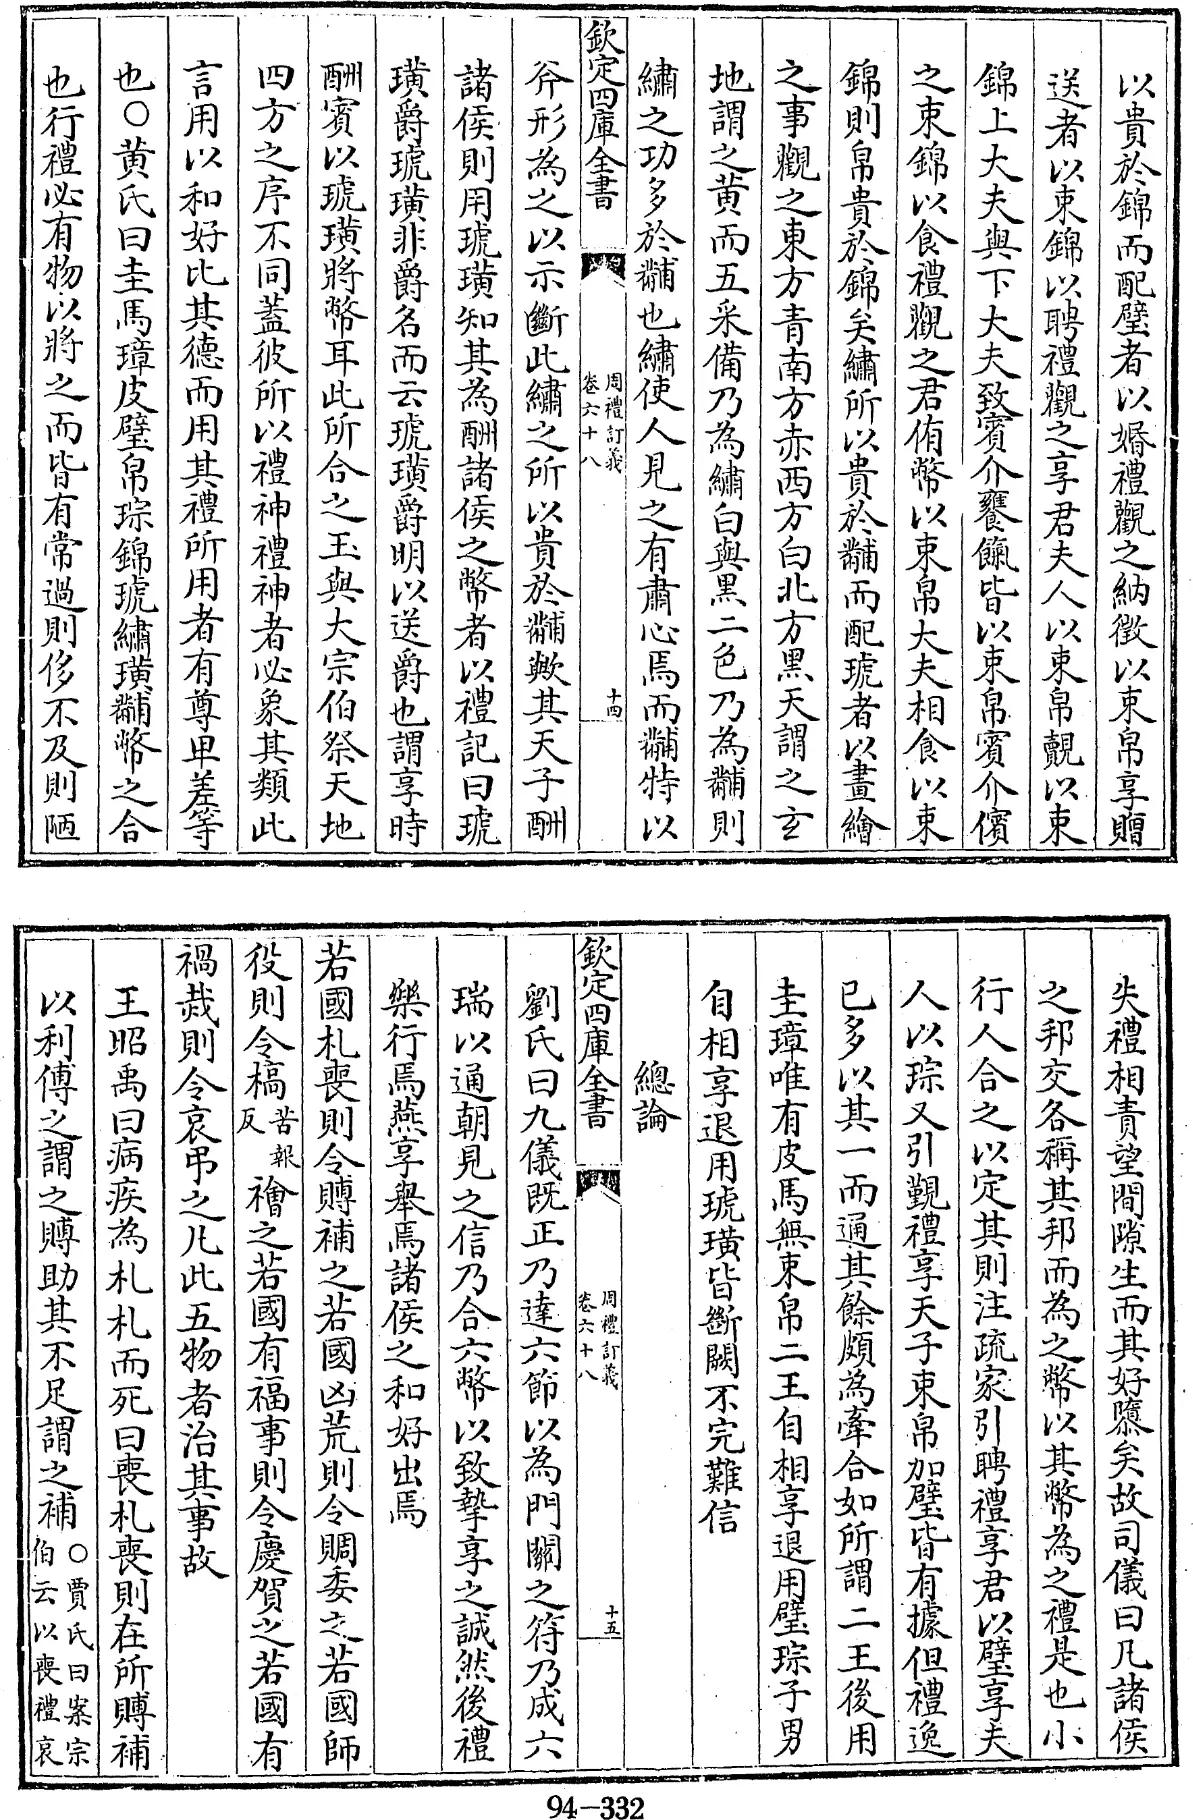 以貴於錦而配璧者以婚禮觀之納徵以束帛享贈
送者以束錦以聘禮觀之享君夫人以束帛覿以束
錦上大夫與下大夫致賓介饔餼皆以束帛賓介儐
之束錦以食禮觀之君侑幣以束帛大夫相食以束
錦則帛貴於錦矣繡所以貴於黼而配琥者以畫繪
之事觀之東方青南方赤西方白北方黑天謂之玄
地謂之黄而五采備乃為繡白與黑二色乃為黼則
繡之功多於黼也繡使人見之有肅心焉而黼特以
欽定四庫全書
周禮訂義
卷六十八
十四
斧形為之以示斷此繡之所以貴於黼歟其天子酬
諸侯則用琥璜知其為酬諸侯之幣者以禮記曰琥
璜爵琥璜非爵名而云琥璜爵明以送爵也謂享時
酬賓以琥璜將幣耳此所合之玉與大宗伯祭天地
四方之序不同蓋彼所以禮神禮神者必象其類此
言用以和好比其德而用其禮所用者有尊卑差等
也○黄氏曰圭馬璋皮璧帛琮錦琥繡璜黼幣之合
也行禮必有物以將之而皆有常過則侈不及則陋
失禮相責望間隙生而其好隳矣故司儀曰凡諸侯
之邦交各稱其邦而為之幣以其幣為之禮是也小
行人合之以定其則注疏家引聘禮享君以璧享夫
人以琮又引覲禮享天子束帛加璧皆有據但禮逸
已多以其一而通其餘頗為牽合如所謂二王後用
圭璋唯有皮馬無束帛二王自相享退用璧琮子男
自相享退用琥璜皆斷闕不完難信
總論
欽定四庫全書
周禮訂義
卷六十八
十五
劉氏曰九儀既正乃達六節以為門關之符乃成六
瑞以通朝見之信乃合六幣以致摯享之誠然後禮
樂行焉燕享舉焉諸侯之和好出焉
若國札喪則令賻補之若國凶荒則令賙委之若國師
役則令槁苦報反禬之若國有福事則令慶賀之若國有
禍烖則令哀弔之凡此五物者治其事故
王昭禹曰病疾為札札而死曰喪札喪則在所賻補
以利傅之謂之賻助其不足謂之補○賈氏曰案宗伯云以喪禮哀
94-332